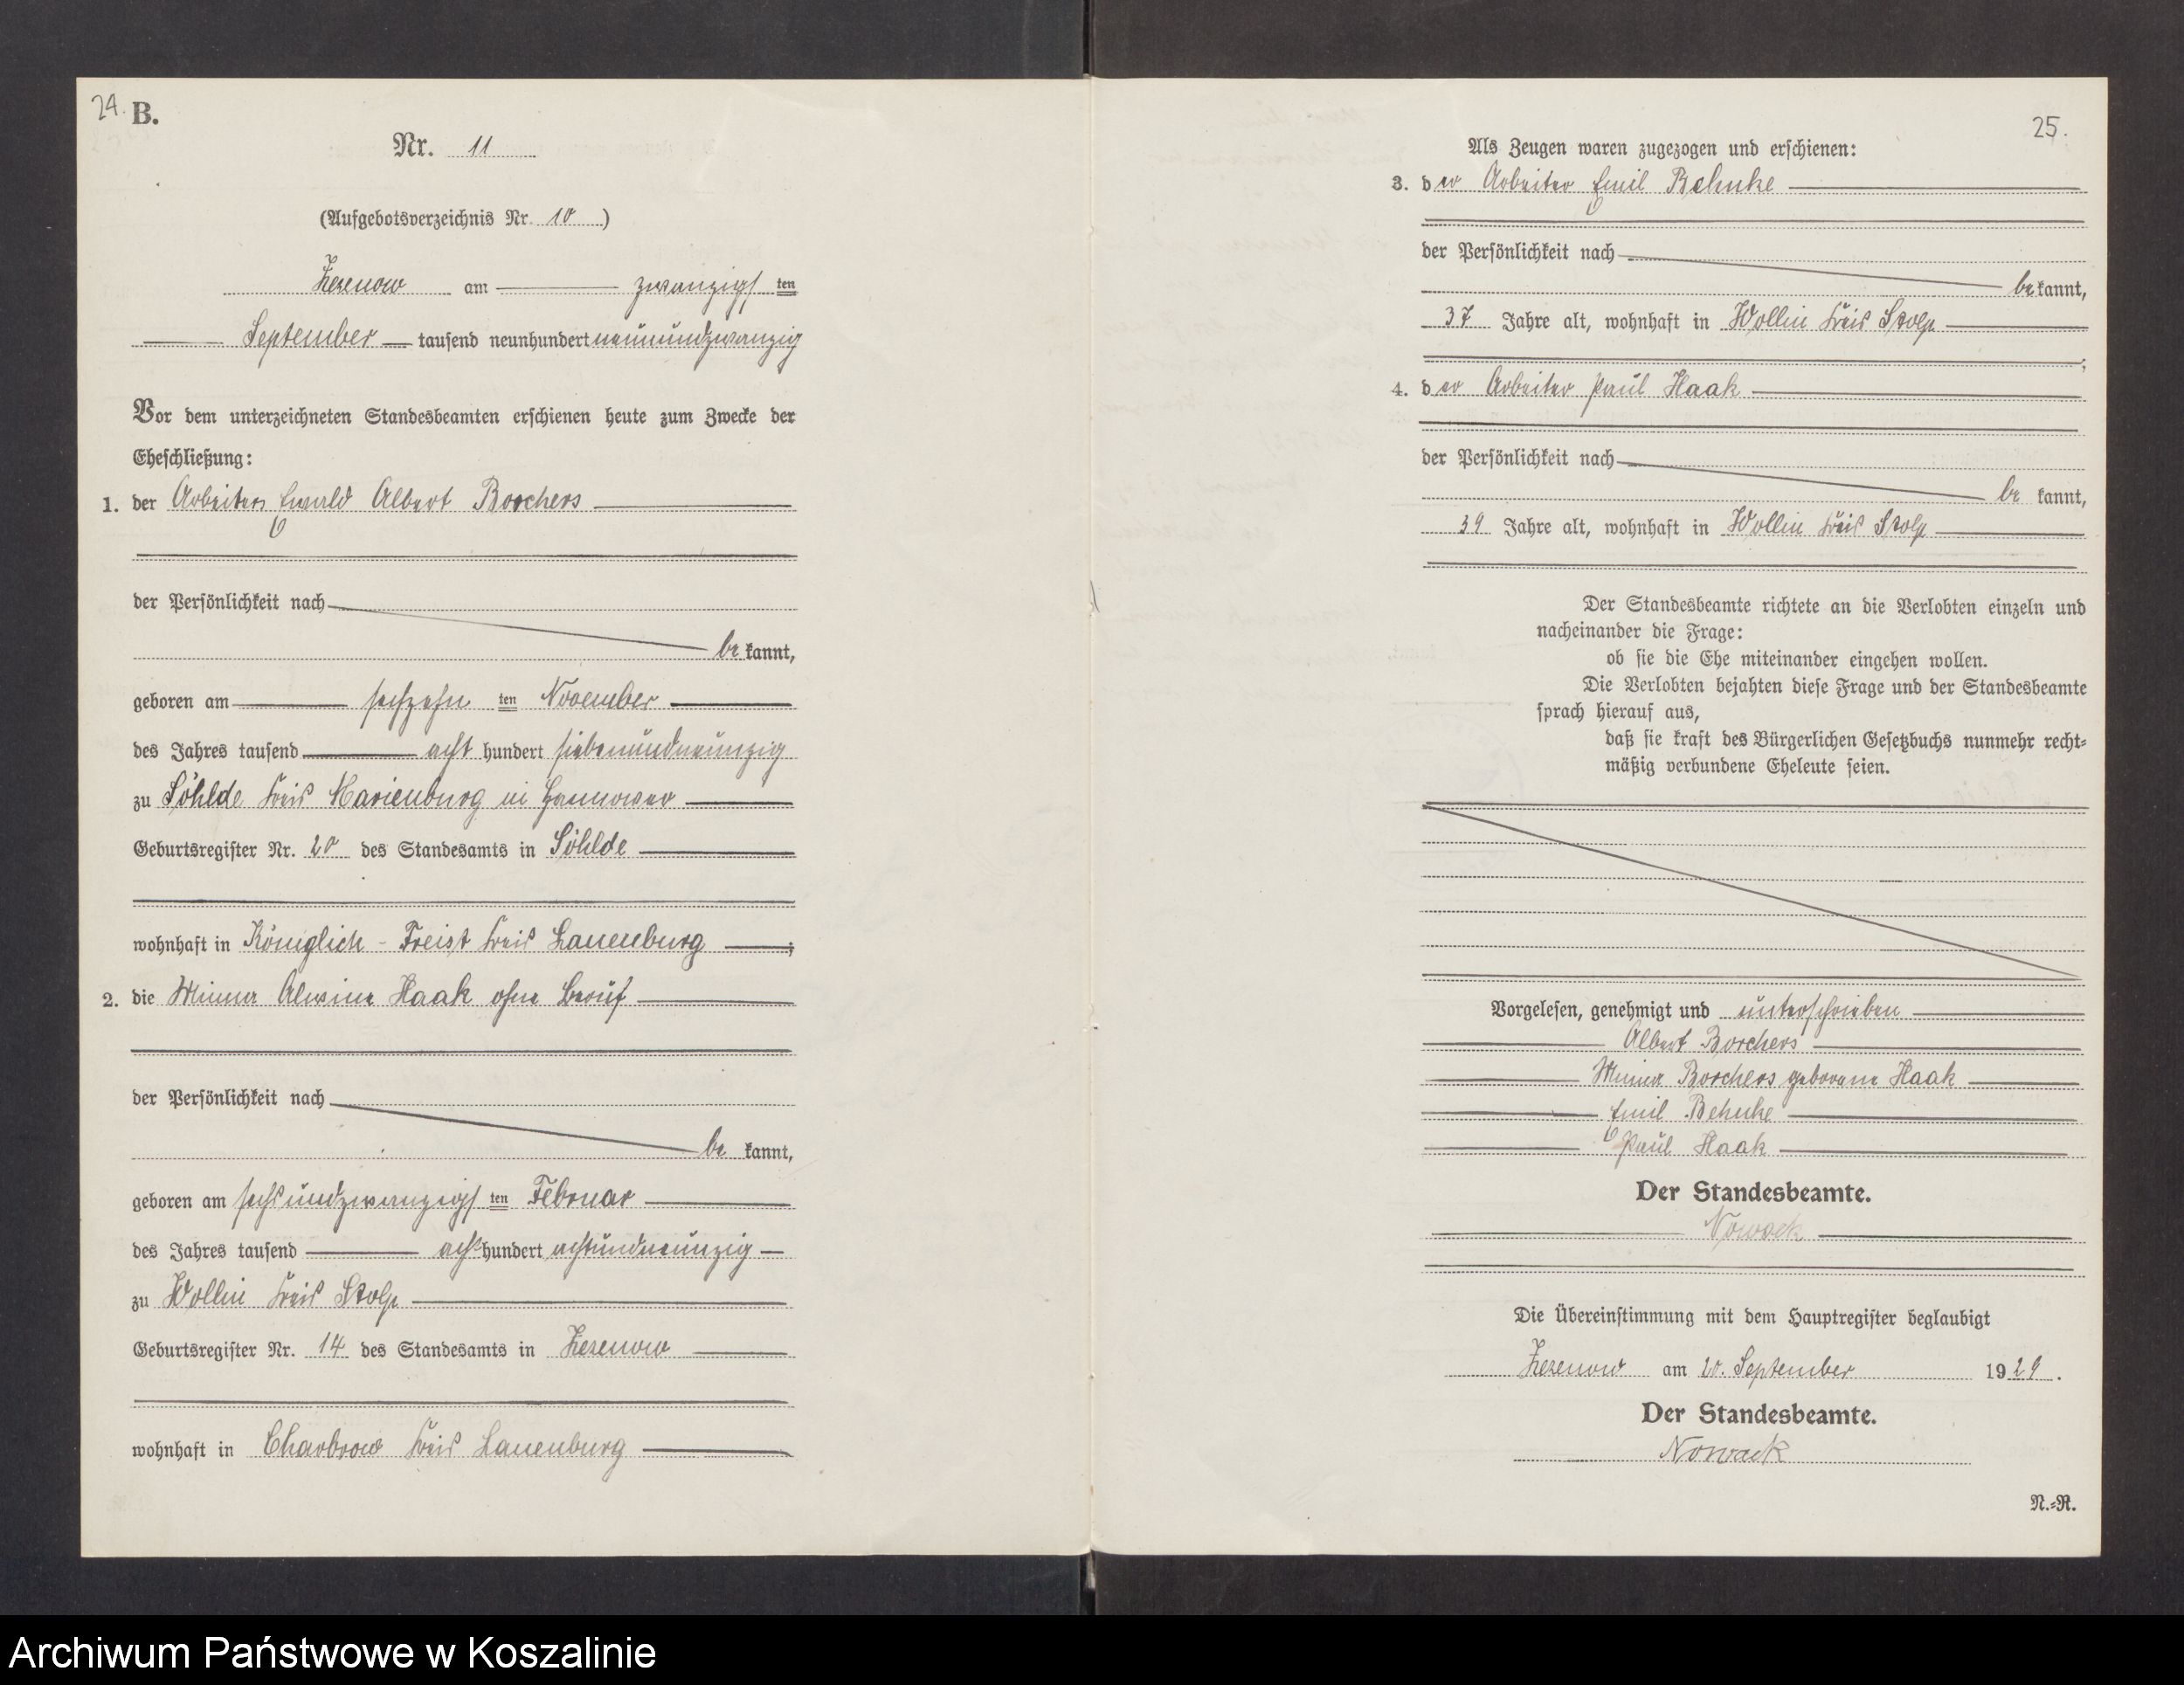 24.
B.
Nr. 11
(Aufgebotsverzeichnis Nr. 10)
Zezenow am zwanzigsten
September tausend neunhundert neunundzwanzig
Vor dem unterzeichneten Standesbeamten erschienen heute zum Zwecke der
Eheschließung:
1. der Arbeiter Ewald Albert Borchers
der Persönlichkeit nach
bekannt,
geboren am sechzehnten November
des Jahres tausend achthundert siebenundneunzig
zu Söhlde Kreis Marienburg in Hannover
Geburtsregister Nr. 20 des Standesamts in Söhlde
wohnhaft in Königlich-Freist Kreis Lauenburg;
2. die Minna Alwine Haak ohne Beruf
der Persönlichkeit nach
bekannt,
geboren am sechsundzwanzigsten Februar
des Jahres tausend achthundert achtundneunzig
zu Wollin Kreis Stolp
Geburtsregister Nr. 14 des Standesamts in Zezenow
wohnhaft in Charbrow Kreis Lauenburg
25.
Als Zeugen waren zugezogen und erschienen:
3. der Arbeiter Emil Behnke
der Persönlichkeit nach
bekannt,
37 Jahre alt, wohnhaft in Wollin Kreis Stolp
;
4. der Arbeiter Paul Haak
der Persönlichkeit nach
bekannt,
39 Jahre alt, wohnhaft in Wollin Kreis Stolp
Der Standesbeamte richtete an die Verlobten einzeln und
nacheinander die Frage:
ob sie die Ehe miteinander eingehen wollen.
Die Verlobten bejahten diese Frage und der Standesbeamte
sprach hierauf aus,
daß sie kraft des Bürgerlichen Gesetzbuchs nunmehr recht-
mäßig verbundene Eheleute seien.
Vorgelesen, genehmigt und unterschrieben
Albert Borchers
Minna Borchers geborene Haak
Emil Behnke
Paul Haak
Der Standesbeamte.
Nowack
Die Übereinstimmung mit dem Hauptregister beglaubigt
Zezenow am 20. September 1929.
Der Standesbeamte.
Nowack
N.-R.
Archiwum Państwowe w Koszalinie